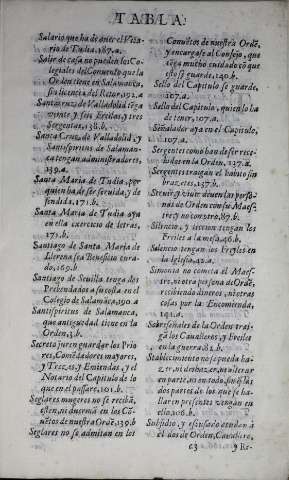 TABLA.
Salario que ha de auer el Vica
rio de Tudia. 187.a.
Salir de casa no pueden los Co
legiales del Conuento que la
Orden tiene en Salamanca,
sin licencia del Retor. 192.a
Santa cruz de Valladolid tẽga
veinte y seis Freiles y tres
Sergentes. 138.b.
Santa Cruz de Valladolid, y
Santispiritus de Salaman-
ca tengan administradores,
139.a.
Santa Maria de Tudia, por
quien ha de ser seruida, y de-
fendida. 171.b.
Santa Maria de Tudia aya
en ella exercicio de letras,
171.b.
Santiago de Santa Maria de
Llerena sea Beneficio cura-
do. 167.b.
Santiago de Seuilla tẽga dos
Prebendados a su costa en el
Colegio de Salamãca. 190.a
Santispiritus de Salamanca,
que antiguedad tiene en la
Orden. 3.b.
Secreto juren guardar los Prio
res, Comẽdadores mayores,
y Trezes, y Emiendas, y el
Notario del Capitulo de lo
que en el passare. 101.b.
Seglares mugeres no se recibã,
esten, ni duerma en los Cõ
uẽtos de nuestra Ordẽ. 139.b
Seglares no se admitan en los
Conuẽtos de nuestra Ordẽ,
y encargase al Consejo, que
tẽga mucho cuidado cõ que
esto se guarde. 140.b.
Sello del Capitulo se guarde,
107.a.
Sello del Capitulo, quien lo ha
de tener. 107.a.
Señalador aya en el Capitulo,
107.a.
Sergentes como han de ser rece
bidos en la Orden. 127.a.
Sergentes traigan el habito sin
braços, etc. 137.b.
Seruir y viuir deuen las perso-
nas de Orden con su Maes-
tre, y no con otro. 87.b.
Silencio, y leccion tengan los
Freiles a la mesa. 46.b.
Silencio tengan los Freyles en
la Iglesia. 42.a.
Simonia no cometa el Maes-
tre, ni otra persona de Ordẽ
recibiendo dineros, ni otras
cosas por la Encomienda,
191.a.
Sobreseñales de la Orden trai-
gã los Caualleros, y Freiles
en la guerra. 82.b.
Stablecimiento no se pueda ha-
zer, ni deshazer, ni alterar
en parte, ni en todo, sin que las
dos partes de los que se ha-
llaren presentes vengan en
ello. 106.b.
Subsidio, y escusado ayudan à
el los de Orden, Cauallero,
c3 y Re-